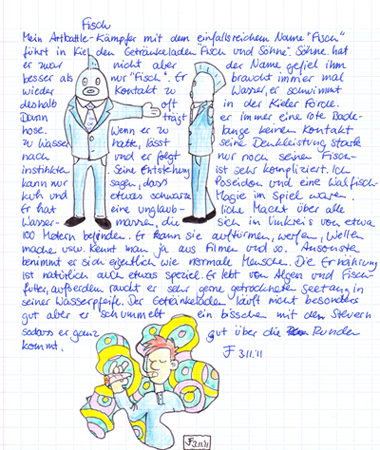 Fisch
Mein Artbattle-Kämpfer mit dem einfallsreichen Name "Fisch"
führt in Kiel den Getränkeladen "Fisch und Söhne". Söhne hat
er zwar nicht aber der Name gefiel ihm
besser als nur "Fisch". Er braucht immer mal
wieder Kontakt zu Wasser, er schwimmt
deshalb oft in der Kieler Förde.
Dann trägt er immer eine rote Bade-
hose. Wenn er zu lange keinen Kontakt
zu Wasser hatte, lässt seine Denkleistung stark
nach und er folgt nur noch seinen Fisch-
instinkten. Seine Entstehung ist sehr kompliziert. Ich
kann nur sagen, dass Poseidon und eine Walfisch-
kuh und etwas schwarze Magie im Spiel waren.
Er hat eine unglaub- liche Macht über alle
Wasser- massen, die sich im Umkreis von etwa
100 Metern befinden. Er kann sie auftürmen, werfen, Wellen
machen usw. Kennt man ja aus Filmen und so. Ansonsten
benimmt er sich eigentlich wie normale Menschen. Die Ernährung
ist natürlich auch etwas speziel. Er lebt von Algen und Fisch-
futter, außerdem raucht er sehr gerne getrockneten Seetang in
seiner Wasserpfeife. Der Getränkeladen läuft nicht besonders
gut aber er schummelt ein bisschen mit den Steuern
sodass er ganz gut über die Runden
kommt. JF 3.11.'11
JF 3.11.'11